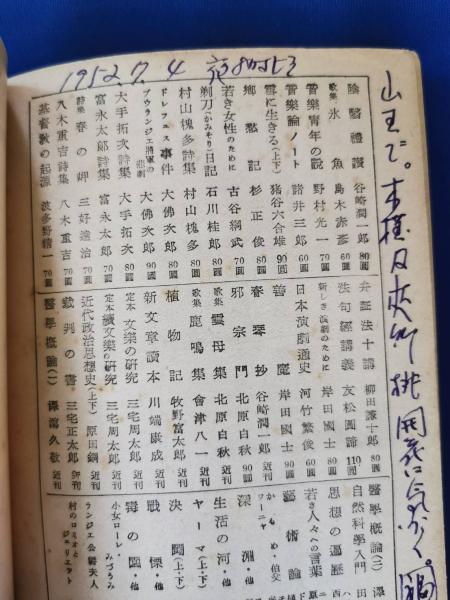 1952.7.4
陰翳禮讃 谷崎潤一郎 80圓
歌集 氷魚 島木赤彦 60圓
音樂青年の説 野村光一 70圓
音樂論ノート 諸井三郎 60圓
雪に生きる(上下) 猪谷六合雄
郷愁記 杉正俊 80圓
若き女性のために 古谷綱武 70圓
剃刀(かみそり)日記 石川桂郎 80圓
村山槐多詩集 村山槐多 80圓
ドレフュス事件 大佛次郎 80圓
ブウランジェ將軍の悲劇 大佛次郎 90圓
大手拓次詩集 大手拓次 80圓
富永太郎詩集 富永太郎 80圓
詩集 春の岬 三好達治 70圓
八木重吉詩集 八木重吉 70圓
基督教の起源 波多野精一 70圓
弁証法十講 柳田謙十郎 80圓
法句經講義 友松圓諦 110圓
新しき演劇のために 岸田國士 80圓
日本演劇通史 河竹繁俊 60圓
善魔 岸田國士 90圓
春琴抄 谷崎潤一郎 近刊
邪宗門 北原白秋 90圓
歌集 雲母集 北原白秋 近刊
歌集 鹿鳴集 會津八一 近刊
植物記 牧野富太郎 近刊
新文章讀本 川端康成 近刊
定本 文樂の研究 三宅周太郎 近刊
定本 續文樂の研究 三宅周太郎 近刊
近代政治思想史(上下) 原田鋼 近刊
裁判の書 三宅正太郎 近刊
醫學概論(一) 澤瀉久敬 近刊
醫學概論(二) 澤
自然科學入門 田
思想の遍歴
若き人々への言葉
藝術論
かもめ・伯父ワーニャ
深淵・他
生活の河・他
ヤーマ(上・下)
決鬪(上・下)
戰慄・他
毒の園・他
小女ローレ・みづうみ
ランジェ公爵夫人
村のロミオとジュリエット